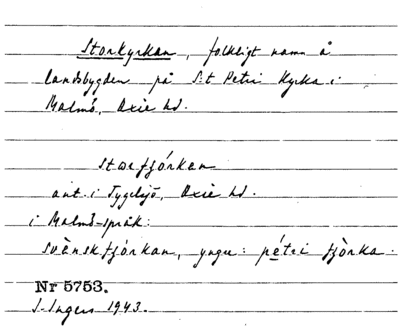 Storkyrkan, folkligt namn å
landsbygden på S:t Petri Kyrka i
Malmö, Oxie hd.
Stœrfjórkan
ant. i Tygelsjö, Oxie hd.
i Malmö-språk:
svènskfjórkan, yngre: pétri fjòrka.
Nr 5753.
I. Ingers 1943.